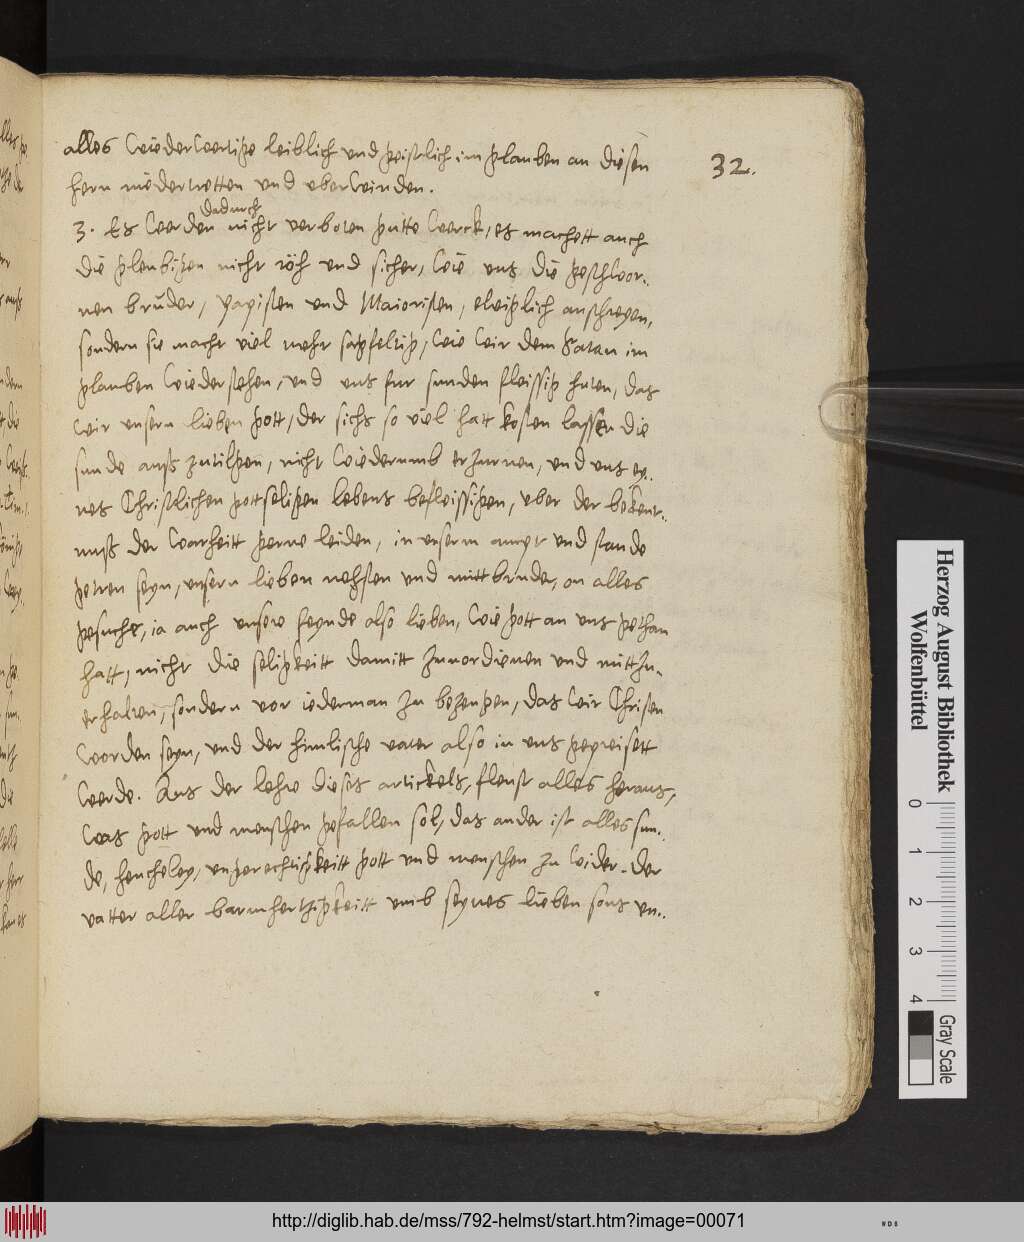 alles wiederwertige leiblich und geistlich im glauben an diesen
32.
hern niedertretten und uberwinden.
dadurch
3. Es werden nicht verboten gutte werck, es machett auch
die gleubigen nicht roh und sicher, wie uns die geschwor..
nen bruder, papisten und Maioristen, eleiglich anschreyen,
sondern sie macht viel mehr sorgfeltig, wie wir dem Satan im
glauben wiederstehen, und uns fur sunden fleissig huten, das
wir unsern lieben gott, der sichs so viel hatt kosten lassen die
sunde auß zutilgen, nicht wiederumb erzurnen, und uns ey..
nes Christlichen gottseligen lebens befleissigen, uber der bekent..
nuß der warheitt gerne leiden, in unserm ampt und stande
getren seyn, unsern lieben nehsten und mittbruder, on alles
gesuche, ia auch unsere feynde also lieben, wie gott an uns gethan
hatt, nicht die seligkeitt damitt zuuordienen und mitt zu..
erhalten, sondern vor iederman zu bezeugen, das wir Christen
worden seyn, und der himlische vater also in uns gepreisett
werde. Aus der lehre dieses artickels, fleust alles heraus,
was gott und menschen gefallen sol, das ander ist alles sun..
de, heucheley, ungerechtigkeitt gott und menschen zu wider. der
vatter aller barmhertzigkeitt umb seynes lieben sons un..
Herzog August Bibliothek
Wolfenbüttel
0 1 2 3 4
Gray Scale
http://diglib.hab.de/mss/792-helmst/start.htm?image=00071